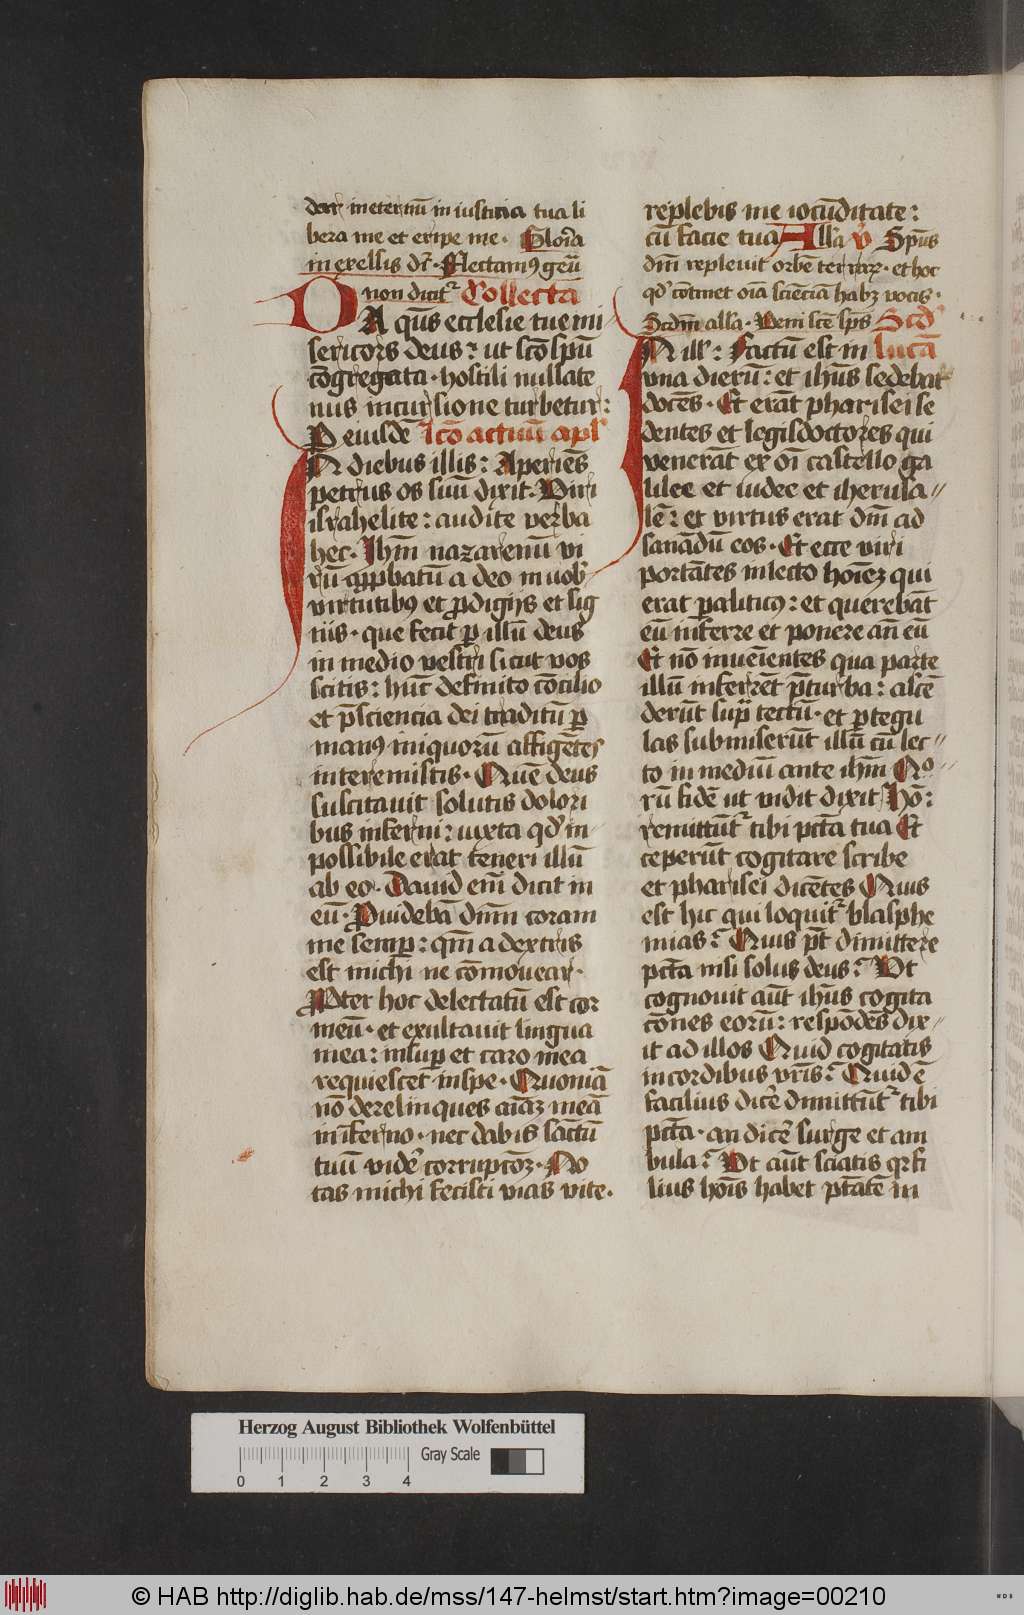 dar ineternū in iusticia tua li
bera me et eripe me· Gloria
in exelsis dr̄· Flectam⁹ genū
non dicit᷑ Collecta
DA qūs ecclesie tue mi
sericors deus: ut sc̄o spū
cōgregata· hostili nullate
nus incursione turbetur:
P eiusdē Lcō actuū apl'
IN diebus illis: Aperiēs
petrus os suū dixit· Viri
israhelite: audite verba
hec· Jhm̄ nazarenū vi
rū apꝓbatū a deo in uob᷒
virtutib⁹ et ꝓdigijs et sig
nis· que fecit ꝑ illū deus
in medio vestri sicut vos
scitis: hūc definito cōcilio
et p̄sciencia dei traditū ꝑ
man⁹ iniquorū affigētes
interemistis· Quē deus
suscitauit solutis dolori
bus inferni: iuxta qd' in
possibile erat teneri illū
ab eo· Dauid em̄ dicit in
eū· Prouidebā dn̄m coram
me semꝑ: qm̄ a dextris
est michi ne cōmouear·
Pter hoc delectatū est cor
meū· et exultauit lingua
mea: insuꝑ et caro mea
requiescet inspe· Quoniā
nō derelinques aīaꝫ meā
inferno· nec dabis sāctū
tuū videꝰ corrupcōꝫ· No
tas michi fecisti vias vite·
replebis me iocūditate:
cū facie tua Alla ꝟ Spūs
dn̄i repleuit orbē terraꝝ· et hoc
qd' cōtinet oīa sciēciā habꝫ vocis·
Scdm̄ alla· Veni scē sp̄s Scd'
IN ill': Factū est in Lucā
vna dierū: et ihūs sedebat
docēs· Et erāt pharisei se
dentes et legisdoctores qui
venerāt ex oī castello ga
lilee et iudee et iherusa〃
lē: et virtus erat dn̄i ad
sanādū eos· Et ecce viri
portātes inlecto hoīeꝫ qui
erat ꝑaliticus: et querebāt
eū inferre et ponere an̄ eū
Et nō inueīentes qua parte
illū inferrēt p̄turba: ascē
derūt supͣ tectū· et ꝑtegu
las submiserūt illū cū lec〃
to in mediū ante ihm̄ Qᵒ
rū fidē ut vidit dixit Hō:
remittūt᷑ tibi pctā tua Et
ceperūt cogitare scribe
et pharisei dicētes Quis
est hic qui loquit᷑ blasphe
mias? Quis p̄t dimittere
pctā nisi solus deus? Vt
cognouit aūt ihūs cogita
cōnes eorū: respōdēs dix〃
it ad illos Quid cogitatis
incordibus vr̄is? Quid ē
facilius dicē dimittūt᷑ tibi
pctā· an dicē surge et am
bula? Vt aūt sciatis qꝛ fi
lius hoīs habet p̄tātē in
Herzog August Bibliothek Wolfenbüttel
Gray Scale
0 1 2 3 4
© HAB http://diglib.hab.de/mss/147-helmst/start.htm?image=00210